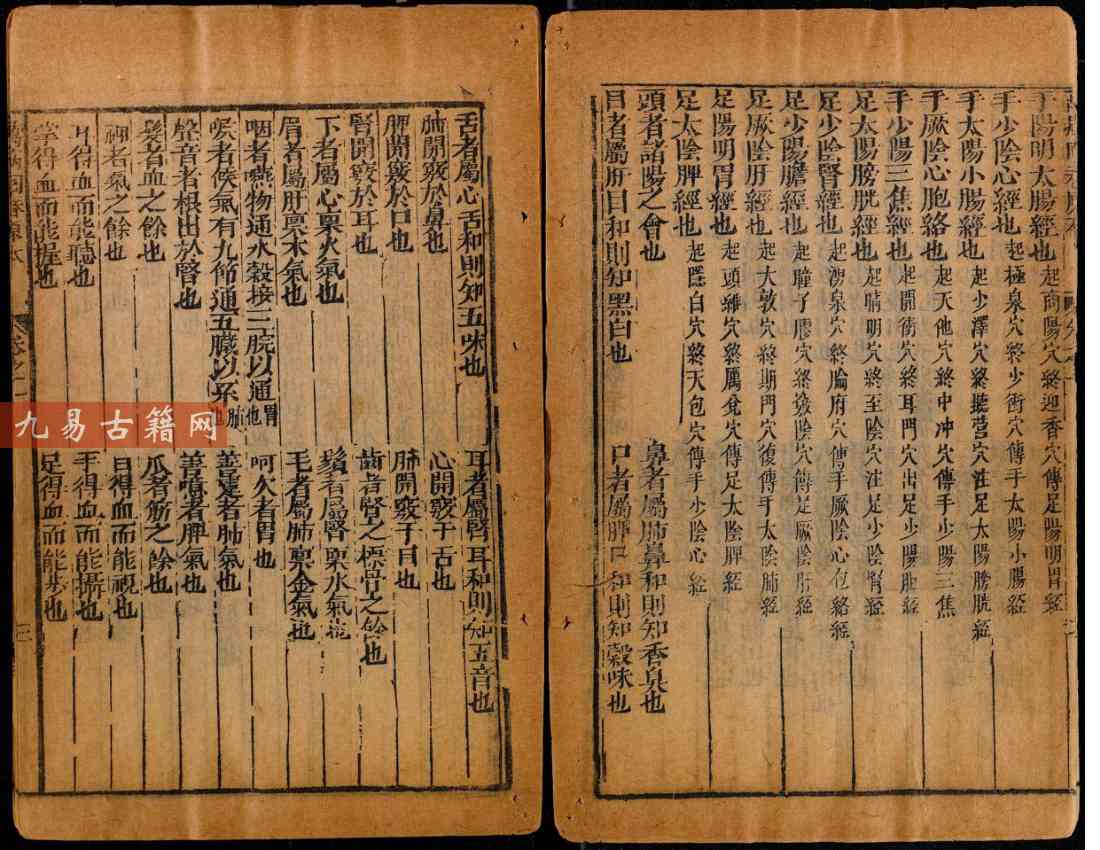 手陽明大腸經也 起商陽穴終迎香穴傳足陽明胃經
手少陰心經也 起極泉穴終少衝穴傳手太陽小腸經
手太陽小腸經也 起少澤穴終聽宮穴注足太陽膀胱經
手厥陰心胞絡也 起天池穴終中冲穴傳手少陽三焦
手少陽三焦經也 起關衝穴終耳門穴出足少陽胆經
足太陽膀胱經也 起睛明穴終至陰穴注足少陰腎經
足少陰腎經也 起湧泉穴終腧府穴傳手厥陰心包絡經
足少陽膽經也 起瞳子膠穴終竅陰穴傳足厥陰肝經
足厥陰肝經也 起大敦穴終期門穴復傳手太陰肺經
足陽明胃經也 起頭維穴終厲兌穴傳足太陰脾經
足太陰脾經也 起隱白穴終天包穴傳手少陰心經
頭者諸陽之會也 鼻者屬肺鼻和則知香臭也
目者屬肝目和則知黑白也 口者屬脾口和則知穀味也
舌者屬心舌和則知五味也 耳者屬腎耳和則知五音也
肺開竅於鼻也 心開竅于舌也
脾開竅於口也 肺開竅于目也
腎開竅於耳也 齒者腎之標骨之餘也
下者屬心稟火氣也 鬚者屬腎稟水氣也
眉者屬肝稟木氣也 毛者屬肺稟金氣也
咽者嚥物通水穀接三脘以通胃也 呵欠者胃也
喉者候氣有九節通五臟以系肺也 善嚏者肺氣也
聲音者根出於腎也 善噫者脾氣也
髮者血之餘也 爪者筋之餘也
神者氣之餘也 目得血而能視也
耳得血而能聽也 手得血而能攝也
掌得血而能握也 足得血而能步也
卷之一
三
九易古籍网